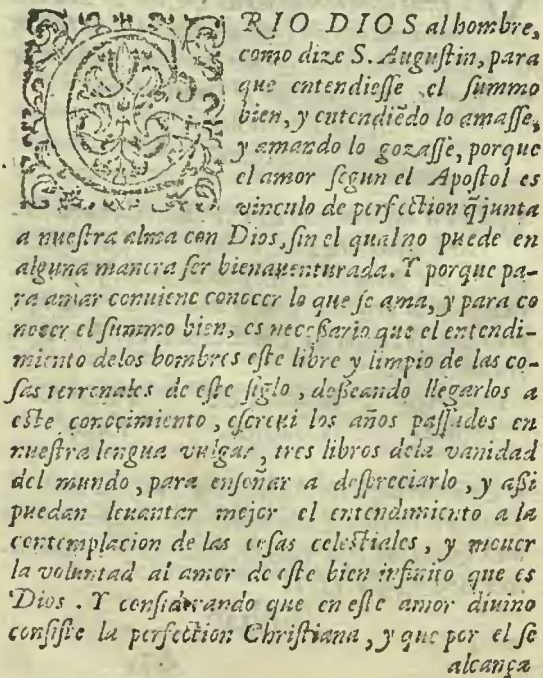 CRIO DIOS al hombre,
como dize S. Auguſtin, para
que entendieſſe el ſummo
bien, y entendiẽdo lo amaſſe,
y amando lo gozaſſe, porque
el amor ſegun el Apoſtol es
vinculo de perfection q̃ junta
a nueſtra alma con Dios, ſin el qual no puede en
alguna manera ſer bienauenturada. Y porque pa-
ra amar conuiene conocer lo que ſe ama, y para co
nocer el ſummo bien, es neceſſario que el entendi-
miento delos hombres eſte libre y limpio de las co-
ſas terrenales de eſte ſiglo, deſſeando llegarlos a
eſte conocimiento, eſcreui los años paſſados en
nueſtra lengua vulgar, tres libros dela vanidad
del mundo, para enſeñar a deſpreciarlo, y aſſi
puedan leuantar mejor el entendimiento a la
contemplacion de las coſas celeſtiales, y mouer
la voluntad al amor de eſte bien infinito que es
Dios. Y conſiderando que en eſte amor diuino
conſiſte la perfection Chriſtiana, y que por el ſe
alcança